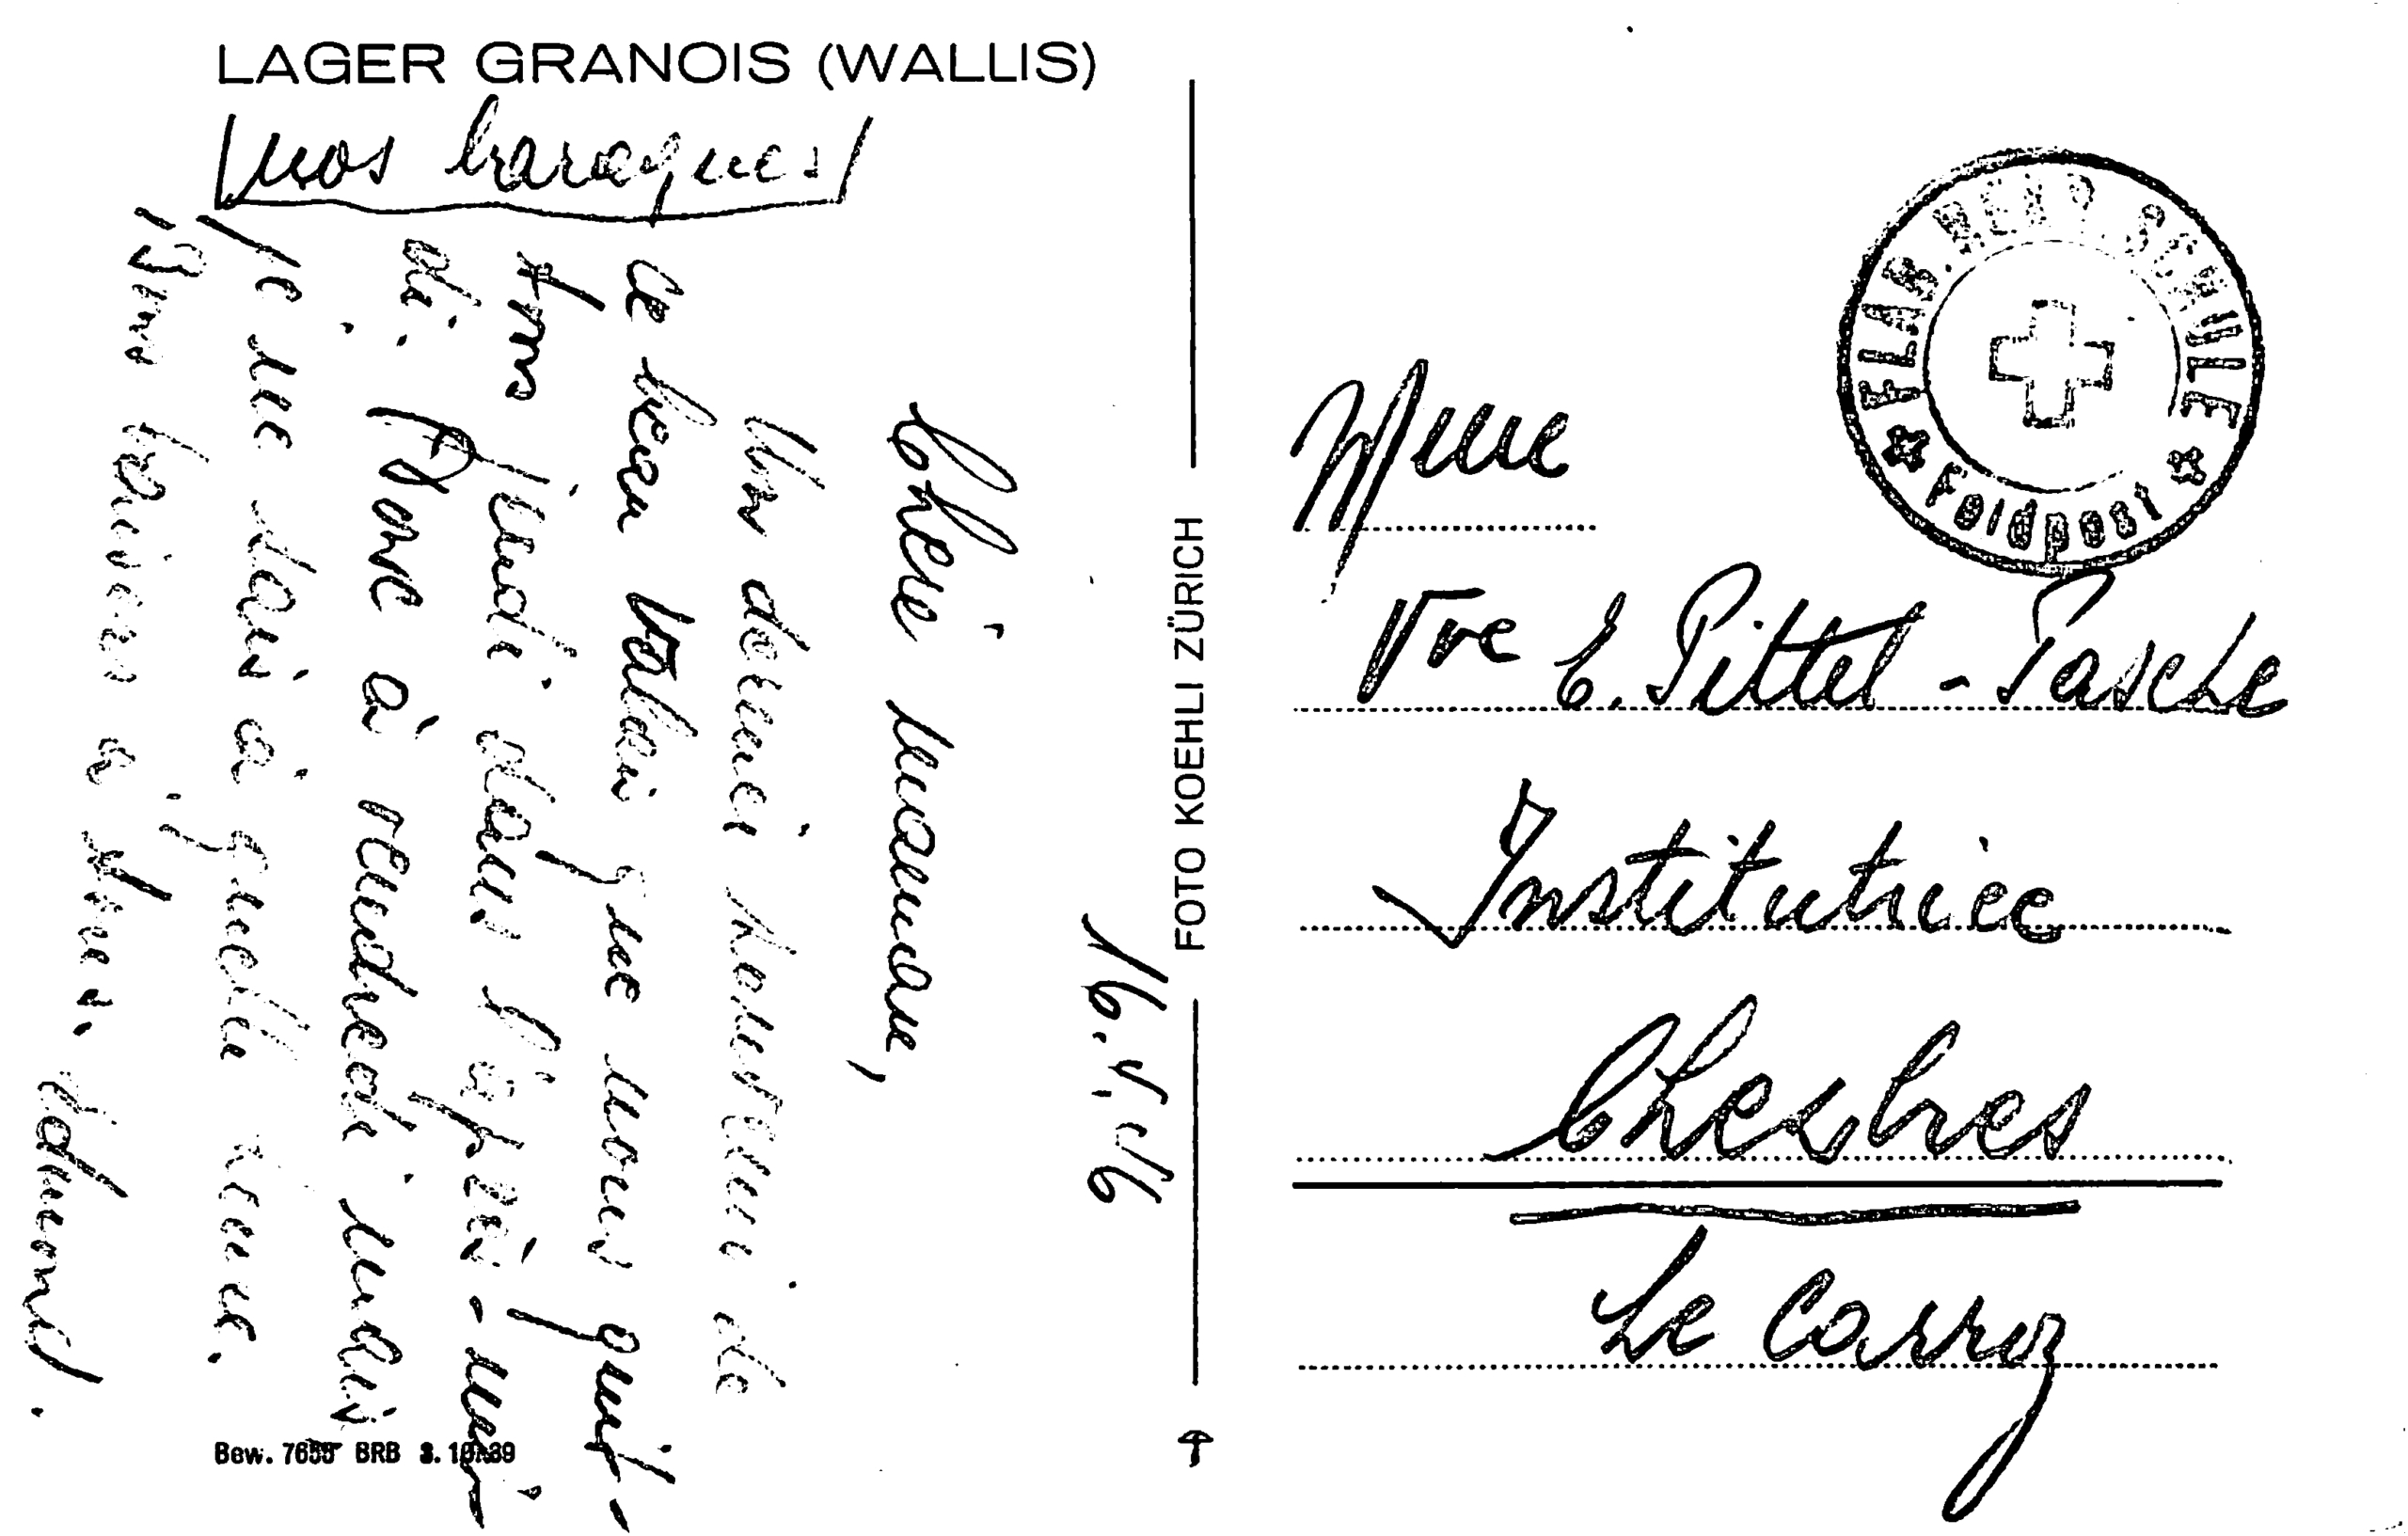 LAGER GRANOIS (WALLIS)
nos baraques
16.V.46
Chère maman,
Un dernier souvenir de
ce beau Valais que nous quit-
tons jeudi dans l'après-mi-
di. à vendredi mais
je ne sais à quelle heure.
Bons baisers à tous. Edmond.
Bew. 7655 BRB 3.10.39
FOTO KOEHLI ZÜRICH
FLAB.REKR.SCHULE
Feldpost
Mme
Vve E. Pittet - Pasche
Institutrice
Chexbres
Le Carroz